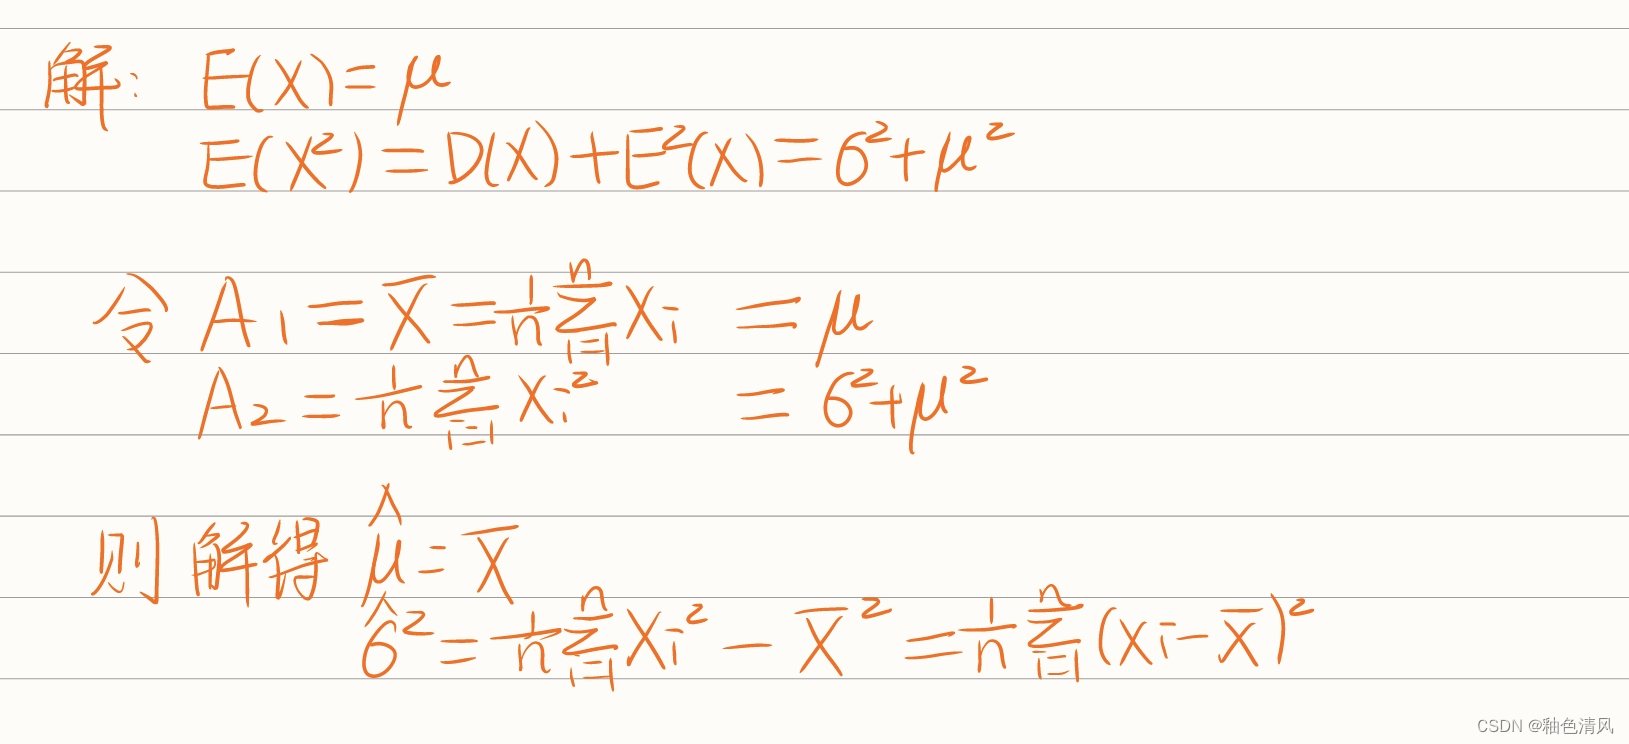 解: E(X) = μ
E(X²) = D(X) + E²(X) = σ² + μ²
令 A₁ = X̄ = 1/n ∑ᵢ₌₁ⁿ Xᵢ = μ
A₂ = 1/n ∑ᵢ₌₁ⁿ Xᵢ² = σ² + μ²
则解得 μ̂ = X̄
σ̂² = 1/n ∑ᵢ₌₁ⁿ Xᵢ² − X̄² = 1/n ∑ᵢ₌₁ⁿ (Xᵢ − X̄)²
CSDN @釉色清风